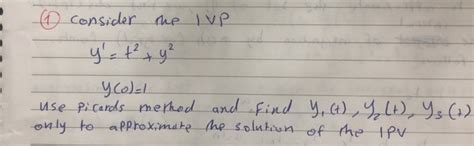 ① Consider the IVP
y' = t² + y²
y(0)=1
use picards method and Find y₁(t), y₂(t), y₃(t)
only to approximate the solution of the IPV